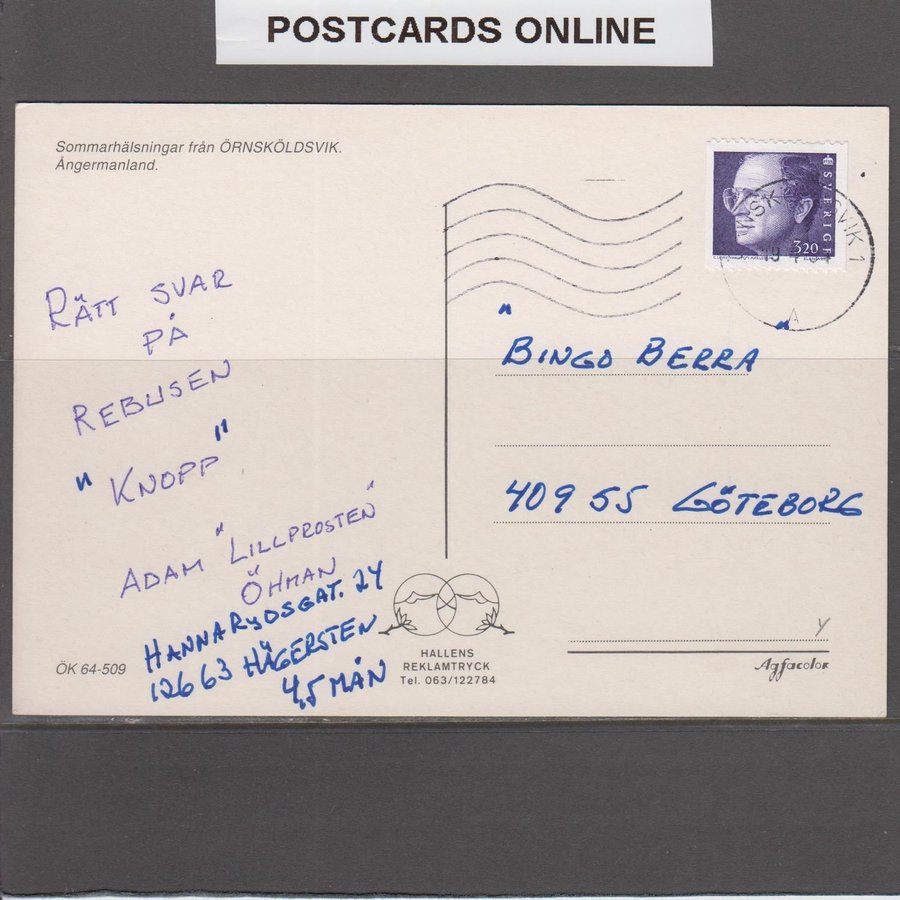 POSTCARDS ONLINE
Sommarhälsningar från ÖRNSKÖLDSVIK.
Ångermanland.
SVERIGE
3.20
RÄTT SVAR
PÅ
REBUSEN
"KNOPP"
ADAM "LILLPROSTEN"
ÖHMAN
HANNA RYDSGAT. 24
126 63 HÄGERSTEN
4,5 MÅN
"BINGO BERRA"
409 55 GÖTEBORG
ÖK 64-509
HALLENS
REKLAMTRYCK
Tel. 063/122784
Agfacolor